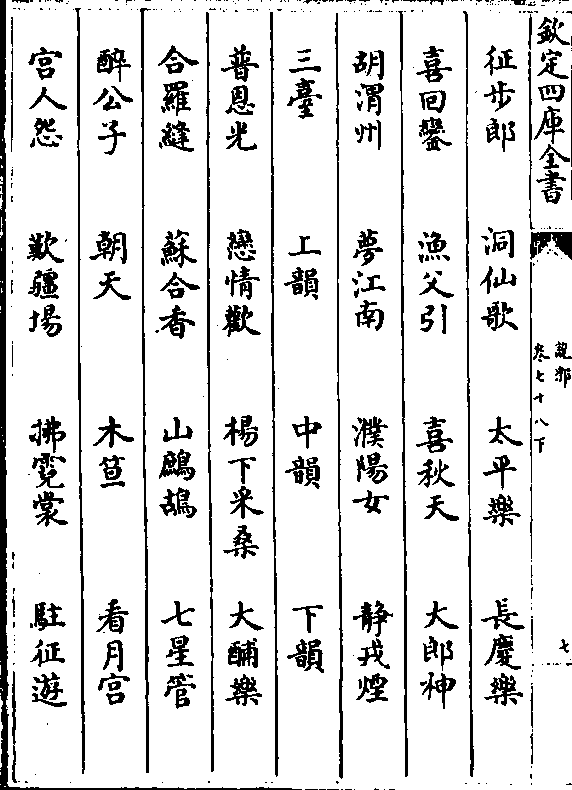 欽定四庫全書
說郛
卷七十八下
七
征步郎　洞仙歌　太平樂　長慶樂
喜回鑾　漁父引　喜秋天　大郎神
胡渭州　夢江南　濮陽女　静戎煙
三臺　上韻　中韻　下韻
普恩光　戀情歡　楊下采桑　大酺樂
合羅縫　蘇合香　山鷓鴣　七星管
醉公子　朝天　木笪　看月宫
宫人怨　歎疆場　拂霓裳　駐征遊